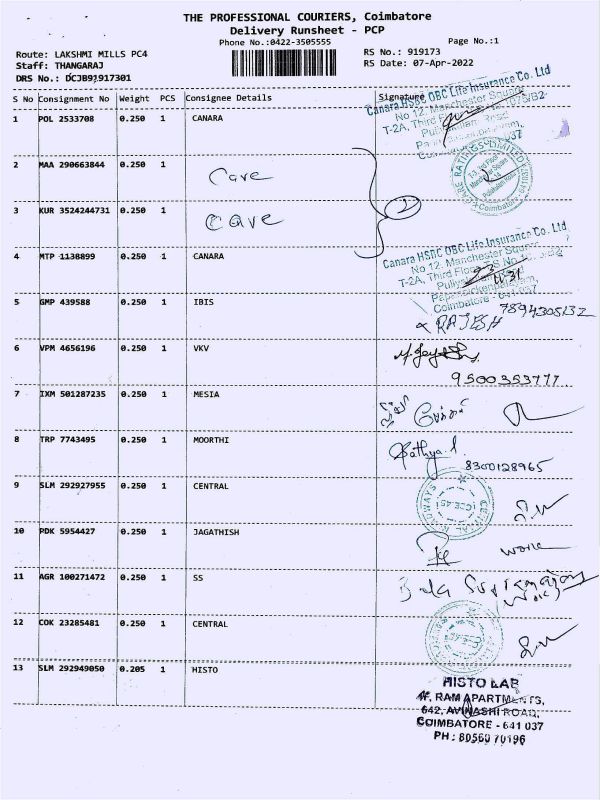 THE PROFESSIONAL COURIERS, Coimbatore
Delivery Runsheet - PCP
Phone No.:0422-3505555
Page No.:1
Route: LAKSHMI MILLS PC4
RS No.: 919173
Staff: THANGARAJ
RS Date: 07-Apr-2022
DRS No.: DCJB92917301
S No Consignment No Weight PCS Consignee Details Signature
Canara HSBC OBC Life Insurance Co. Ltd
No 12. Manchester Square
1 POL 2533708 0.250 1 CANARA
T-2A, Third
2 MAA 290663844 0.250 1 Care
CARE RATINGS LIMITED
Manchester Square
Coimbatore
3 KUR 3524244731 0.250 1 Care
2
4 MTP 1138899 0.250 1 CANARA
Canara HSBC OBC Life Insurance Co. Ltd
No 12. Manchester Square
T-2A, Third Floor
Coimbatore - 641 037
5 GMP 439588 0.250 1 IBIS
7894305132
RAJESH
6 VPM 4656196 0.250 1 VKV
9500353777
7 IXM 501287235 0.250 1 MESIA
8 TRP 7743495 0.250 1 MOORTHI
Sathya
8300128965
9 SLM 292927955 0.250 1 CENTRAL
10 PDK 5954427 0.250 1 JAGATHISH
11 AGR 100271472 0.250 1 SS
Bala
12 COK 23285481 0.250 1 CENTRAL
13 SLM 292949050 0.205 1 HISTO
HISTO LAB
RAM APARTMENTS,
642, AVINASHI ROAD,
COIMBATORE - 641 037
PH : 80560 70196